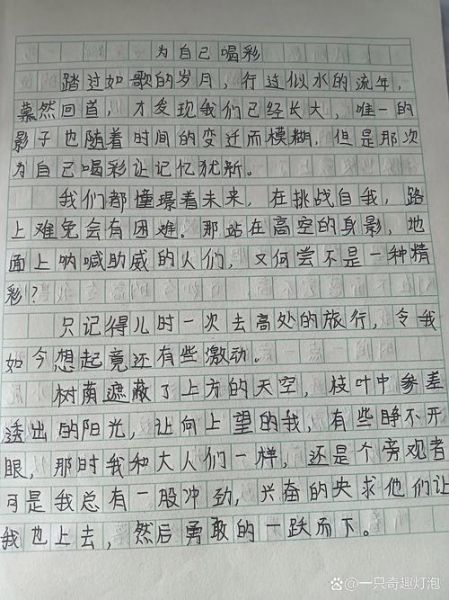 为自己喝彩
踏过如歌的岁月，行过似水的流年，
蓦然回首，才发现我们已经长大，唯一的
影子也随着时间的变迁而模糊，但是那次
为自己喝彩让记忆犹新。
我们都憧憬着未来，在挑战自我，路
上难免会有困难。那站在高空的身影，地
面上呐喊助威的人们，又何尝不是一种精
彩？
只记得儿时一次去高处的旅行，令我
如今想起竟还有些激动。
树荫遮蔽了上方的天空，枝叶中参差
透出的阳光，让向上望的我，有些睁不开
眼，那时我和大人们一样，还是个旁观者
可是我总有一股冲劲，兴奋的央求他们让
我也上去，然后勇敢的一跃而下。
@一只奇趣灯泡